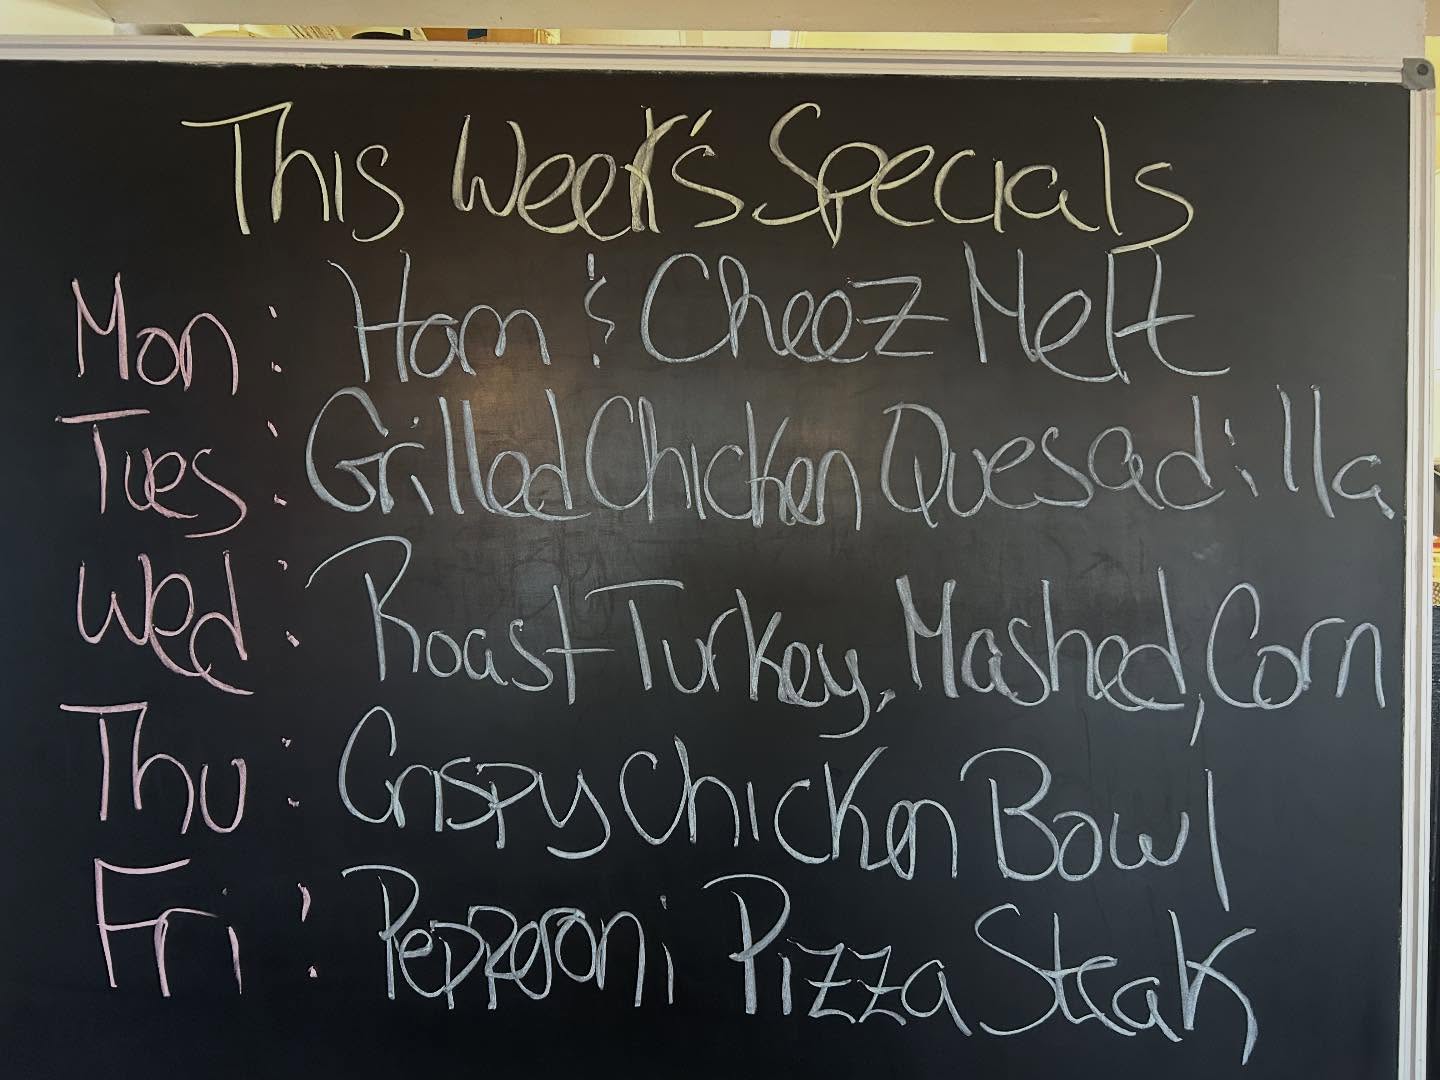 This Week's Specials
Mon: Ham & Cheez Melt
Tues: Grilled Chicken Quesadilla
Wed: Roast Turkey, Mashed, Corn
Thu: Crispy Chicken Bowl
Fri: Pepperoni Pizza Steak